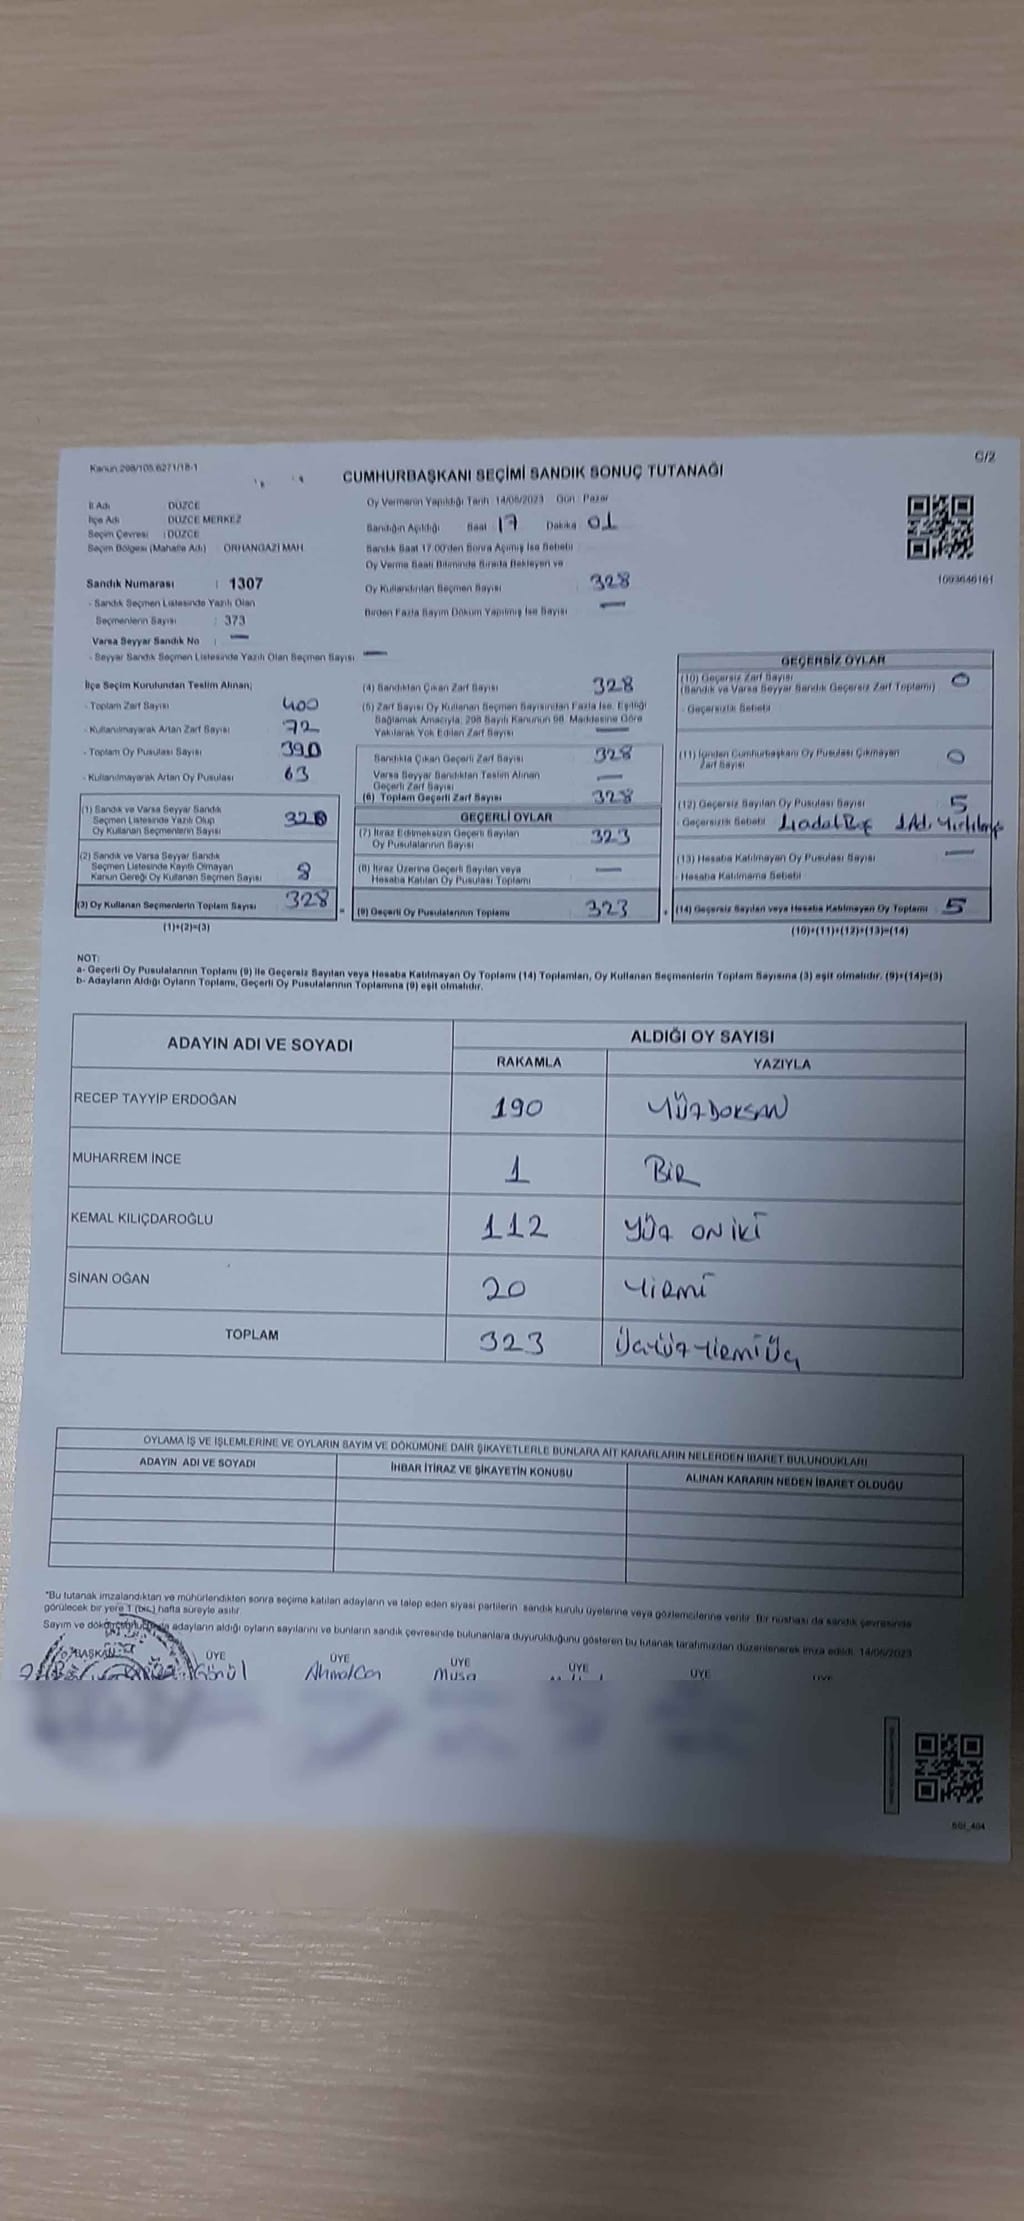 Kanun:298/105,6271/18-1
C/2
CUMHURBAŞKANI SEÇİMİ SANDIK SONUÇ TUTANAĞI
İl Adı DÜZCE
İlçe Adı DÜZCE MERKEZ
Seçim Çevresi : DÜZCE
Seçim Bölgesi (Mahalle Adı) ORHANGAZİ MAH.
Sandık Numarası : 1307
- Sandık Seçmen Listesinde Yazılı Olan
Seçmenlerin Sayısı : 373
Varsa Seyyar Sandık No : —
- Seyyar Sandık Seçmen Listesinde Yazılı Olan Seçmen Sayısı —
Oy Vermenin Yapıldığı Tarih : 14/05/2023 Gün : Pazar
Sandığın Açıldığı Saat 17 Dakika 01
Sandık Saat 17:00'den Sonra Açılmış İse Sebebi
Oy Verme Saati Bitiminde Sırada Bekleyen ve
Oy Kullandırılan Seçmen Sayısı 328
Birden Fazla Sayım Döküm Yapılmış İse Sayısı —
1093646161
İlçe Seçim Kurulundan Teslim Alınan;
- Toplam Zarf Sayısı 400
- Kullanılmayarak Artan Zarf Sayısı 72
- Toplam Oy Pusulası Sayısı 390
- Kullanılmayarak Artan Oy Pusulası 63
(1) Sandık ve Varsa Seyyar Sandık
Seçmen Listesinde Yazılı Olup
Oy Kullanan Seçmenlerin Sayısı 320
(2) Sandık ve Varsa Seyyar Sandık
Seçmen Listesinde Kayıtlı Olmayan
Kanun Gereği Oy Kullanan Seçmen Sayısı 8
(3) Oy Kullanan Seçmenlerin Toplam Sayısı 328
(1)+(2)=(3)
(4) Sandıktan Çıkan Zarf Sayısı 328
(5) Zarf Sayısı Oy Kullanan Seçmen Sayısından Fazla İse, Eşitliği
Sağlamak Amacıyla, 298 Sayılı Kanunun 98. Maddesine Göre
Yakılarak Yok Edilen Zarf Sayısı —
Sandıkta Çıkan Geçerli Zarf Sayısı 328
Varsa Seyyar Sandıktan Teslim Alınan
Geçerli Zarf Sayısı —
(6) Toplam Geçerli Zarf Sayısı 328
GEÇERLİ OYLAR
(7) İtiraz Edilmeksizin Geçerli Sayılan
Oy Pusulalarının Sayısı 323
(8) İtiraz Üzerine Geçerli Sayılan veya
Hesaba Katılan Oy Pusulası Toplamı —
(9) Geçerli Oy Pusulalarının Toplamı 323
GEÇERSİZ OYLAR
(10) Geçersiz Zarf Sayısı 0
(Sandık ve Varsa Seyyar Sandık Geçersiz Zarf Toplamı)
- Geçersizlik Sebebi
(11) İçinden Cumhurbaşkanı Oy Pusulası Çıkmayan
Zarf Sayısı 0
(12) Geçersiz Sayılan Oy Pusulası Sayısı 5
- Geçersizlik Sebebi
(13) Hesaba Katılmayan Oy Pusulası Sayısı —
- Hesaba Katılmama Sebebi
(14) Geçersiz Sayılan veya Hesaba Katılmayan Oy Toplamı 5
(10)+(11)+(12)+(13)=(14)
NOT:
a- Geçerli Oy Pusulalarının Toplamı (9) ile Geçersiz Sayılan veya Hesaba Katılmayan Oy Toplamı (14) Toplamları, Oy Kullanan Seçmenlerin Toplam Sayısına (3) eşit olmalıdır. (9)+(14)=(3)
b- Adayların Aldığı Oyların Toplamı, Geçerli Oy Pusulalarının Toplamına (9) eşit olmalıdır.
ADAYIN ADI VE SOYADI
ALDIĞI OY SAYISI
RAKAMLA YAZIYLA
RECEP TAYYİP ERDOĞAN 190 YÜZDOKSAN
MUHARREM İNCE 1 BİR
KEMAL KILIÇDAROĞLU 112 YÜZ ONİKİ
SİNAN OĞAN 20 YİRMİ
TOPLAM 323 ÜÇYÜZYİRMİÜÇ
OYLAMA İŞ VE İŞLEMLERİNE VE OYLARIN SAYIM VE DÖKÜMÜNE DAİR ŞİKAYETLERLE BUNLARA AİT KARARLARIN NELERDEN İBARET BULUNDUKLARI
ADAYIN ADI VE SOYADI İHBAR İTİRAZ VE ŞİKAYETİN KONUSU ALINAN KARARIN NEDEN İBARET OLDUĞU
"Bu tutanak imzalandıktan ve mühürlendikten sonra seçime katılan adayların ve talep eden siyasi partilerin sandık kurulu üyelerine veya gözlemcilerine verilir. Bir nüshası da sandık çevresinde
görülecek bir yere 1 (bir) hafta süreyle asılır.
Sayım ve adayların aldığı oyların sayılarını ve bunların sandık çevresinde bulunanlara duyurulduğunu gösteren bu tutanak tarafımızdan düzenlenerek imza edildi. 14/05/2023
BAŞKAN ÜYE ÜYE ÜYE ÜYE ÜYE ÜYE
Gönül Ahmet Can Musa